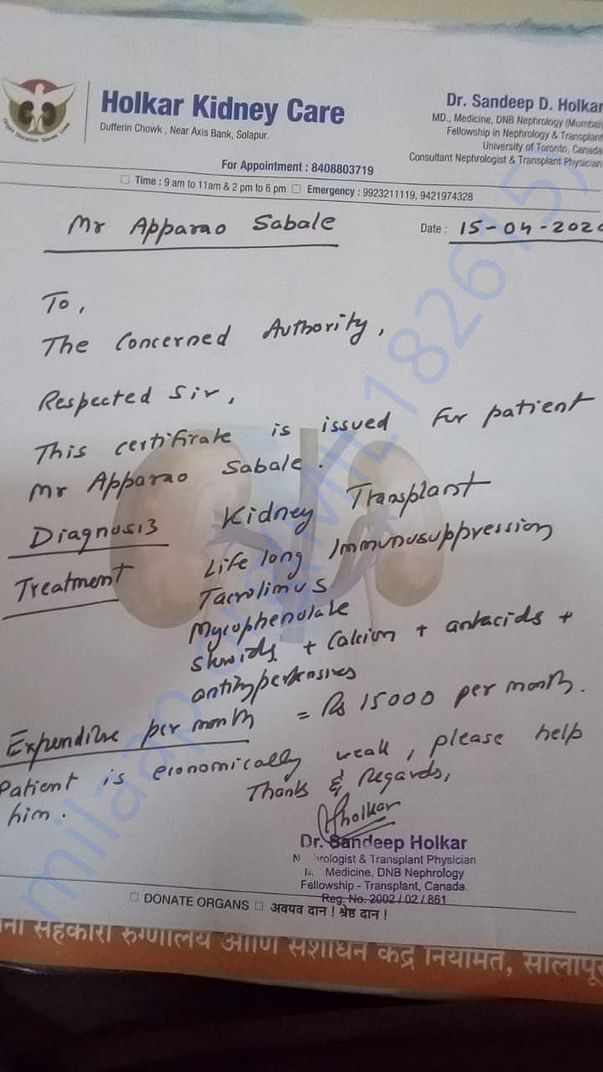 Holkar Kidney Care
Dufferin Chowk , Near Axis Bank, Solapur.
Dr. Sandeep D. Holkar
MD., Medicine, DNB Nephrology (Mumbai)
Fellowship in Nephrology & Transplant
University of Toronto, Canada
Consultant Nephrologist & Transplant Physician
For Appointment : 8408803719
Time : 9 am to 11am & 2 pm to 6 pm Emergency : 9923211119, 9421974328
Mr Apparao Sabale
Date : 15-04-202
To,
The Concerned Authority,
Respected Sir,
This certifirate is issued For patient
Mr Apparao Sabale.
Diagnosis Kidney Transplant
Treatment Life long Immunosuppression
Tacrolimus
Mycophenolate
Steroids + Calcium + antacids +
antihypertensives
Expenditure per month = Rs 15000 per month.
Patient is economically weak, please help
him.
Thanks & Regards,
Holkar
Dr. Sandeep Holkar
rologist & Transplant Physician
Medicine, DNB Nephrology
Fellowship - Transplant, Canada.
Reg. No. 2002 / 02 / 861
DONATE ORGANS अवयव दान ! श्रेष्ठ दान !
सहकारी रुग्णालय आणि संशोधन केंद्र नियमित, सोलापूर
milaap